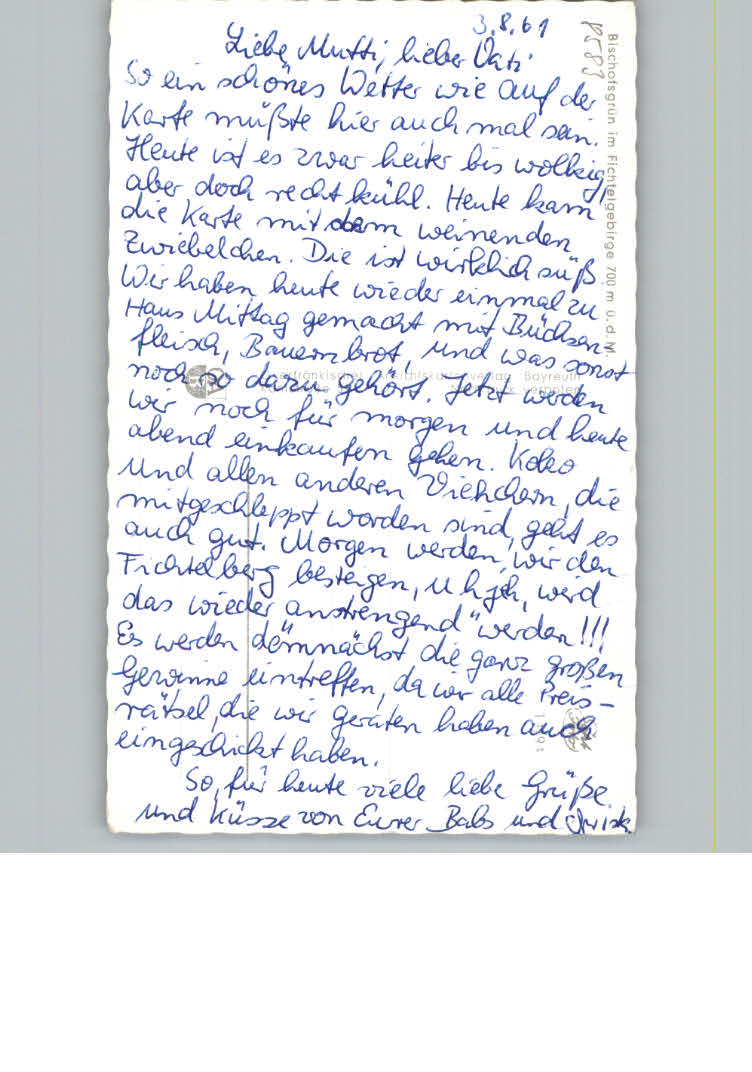 3.8.61
Liebe Mutti, lieber Vati
So ein schönes Wetter wie auf der
Karte müßte hier auch mal sein.
Heute ist es zwar heiter bis wolkig,
aber doch recht kühl. Heute kam
die Karte mit dem weinenden
Zwiebelchen. Die ist wirklich süß.
Wir haben heute wieder einmal zu
Haus Mittag gemacht mit Büchsen-
fleisch, Bauernbrot, und was sonst
noch so dazu gehört. Jetzt werden
wir noch für morgen und heute
abend einkaufen gehen. Koko
und allen anderen Viehchern, die
mitgeschleppt worden sind, geht es
auch gut. Morgen werden wir den
Fichtelberg besteigen, uh jeh, wird
das wieder anstrengend werden!!!
Es werden demnächst die ganz großen
Gewinne eintreffen, da wir alle Preis-
rätsel, die wir geraten haben auch
eingeschickt haben.
So, für heute viele liebe Grüße
und Küsse von Eurer Babs und
Bischofsgrün im Fichtelgebirge 700 m ü. d. M.
P583
Bayreuth